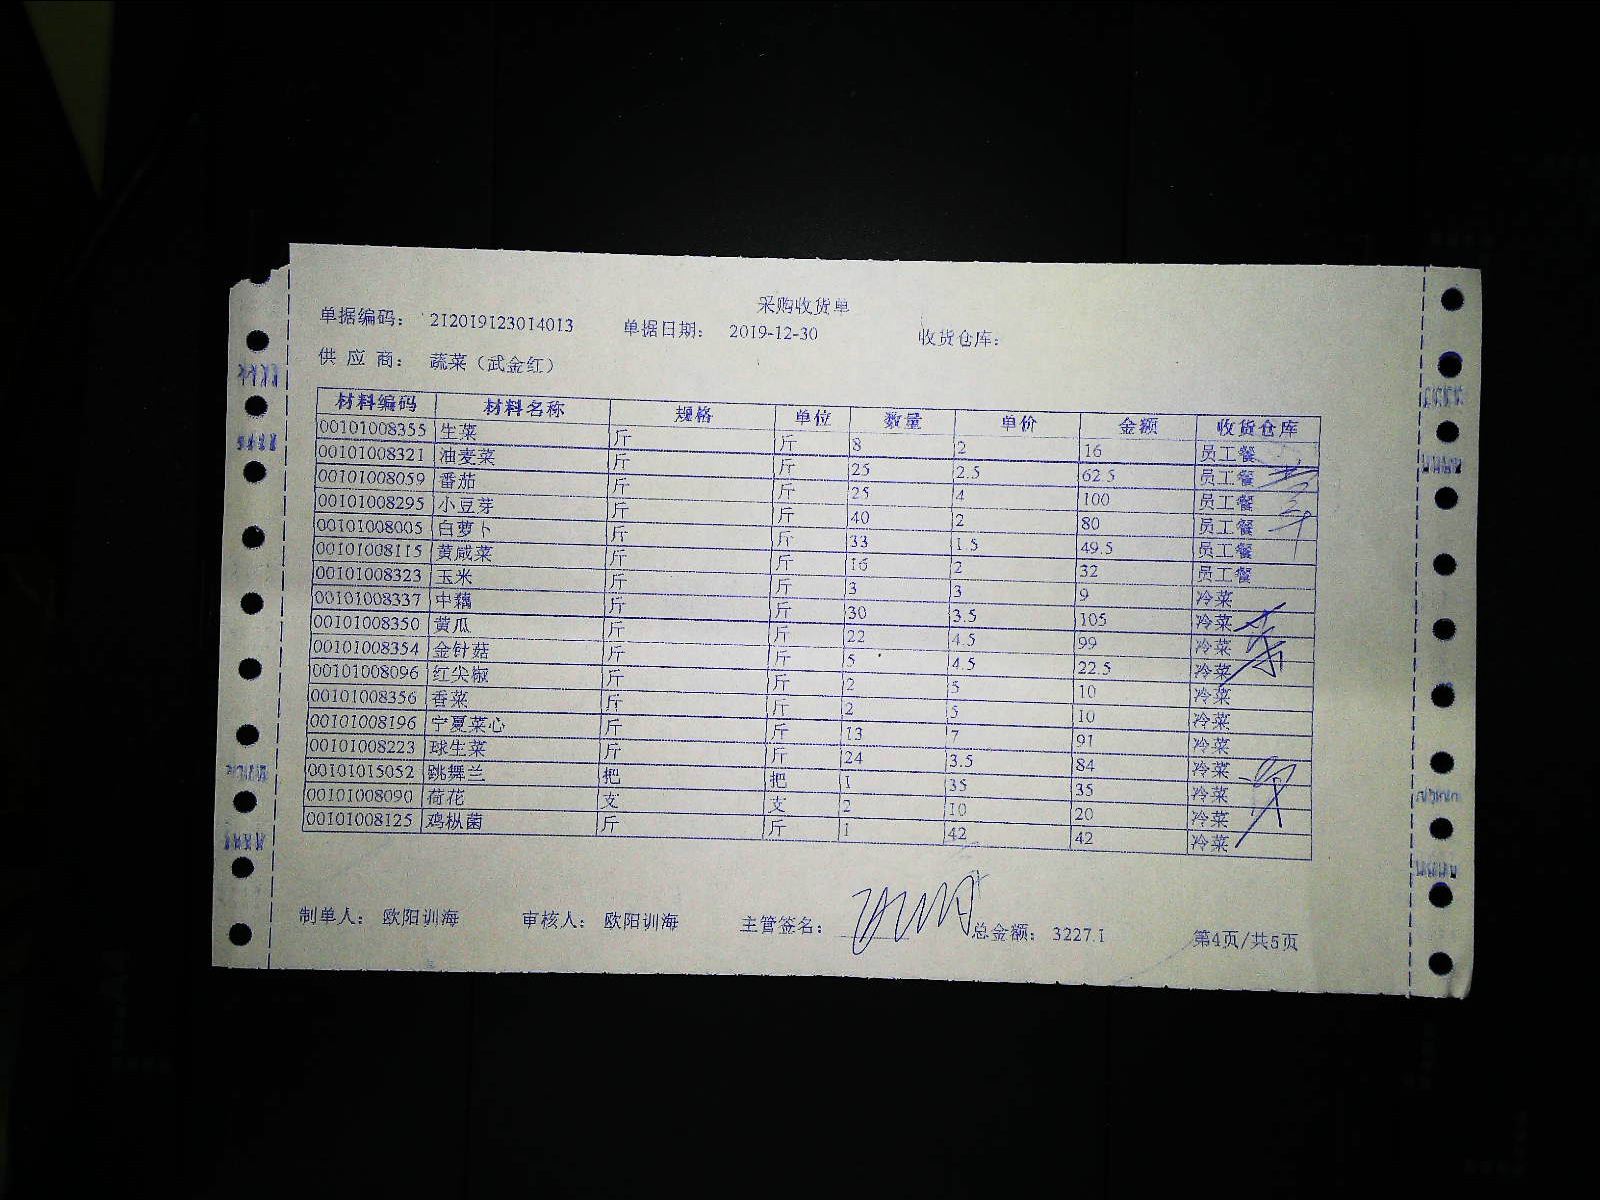 采购收货单
单据编码： 212019123014013 单据日期： 2019-12-30 收货仓库：
供 应 商： 蔬菜（武金红）
材料编码 材料名称 规格 单位 数量 单价 金额 收货仓库
00101008355 生菜 斤 斤 8 2 16 员工餐
00101008321 油麦菜 斤 斤 25 2.5 62.5 员工餐
00101008059 番茄 斤 斤 25 4 100 员工餐
00101008295 小豆芽 斤 斤 40 2 80 员工餐
00101008005 白萝卜 斤 斤 33 1.5 49.5 员工餐
00101008115 黄咸菜 斤 斤 16 2 32 员工餐
00101008323 玉米 斤 斤 3 3 9 冷菜
00101008337 中藕 斤 斤 30 3.5 105 冷菜
00101008350 黄瓜 斤 斤 22 4.5 99 冷菜
00101008354 金针菇 斤 斤 5 4.5 22.5 冷菜
00101008096 红尖椒 斤 斤 2 5 10 冷菜
00101008356 香菜 斤 斤 2 5 10 冷菜
00101008196 宁夏菜心 斤 斤 13 7 91 冷菜
00101008223 球生菜 斤 斤 24 3.5 84 冷菜
00101015052 跳舞兰 把 把 1 35 35 冷菜
00101008090 荷花 支 支 2 10 20 冷菜
00101008125 鸡枞菌 斤 斤 1 42 42 冷菜
制单人： 欧阳训海 审核人： 欧阳训海 主管签名： 总金额： 3227.1 第4页/共5页